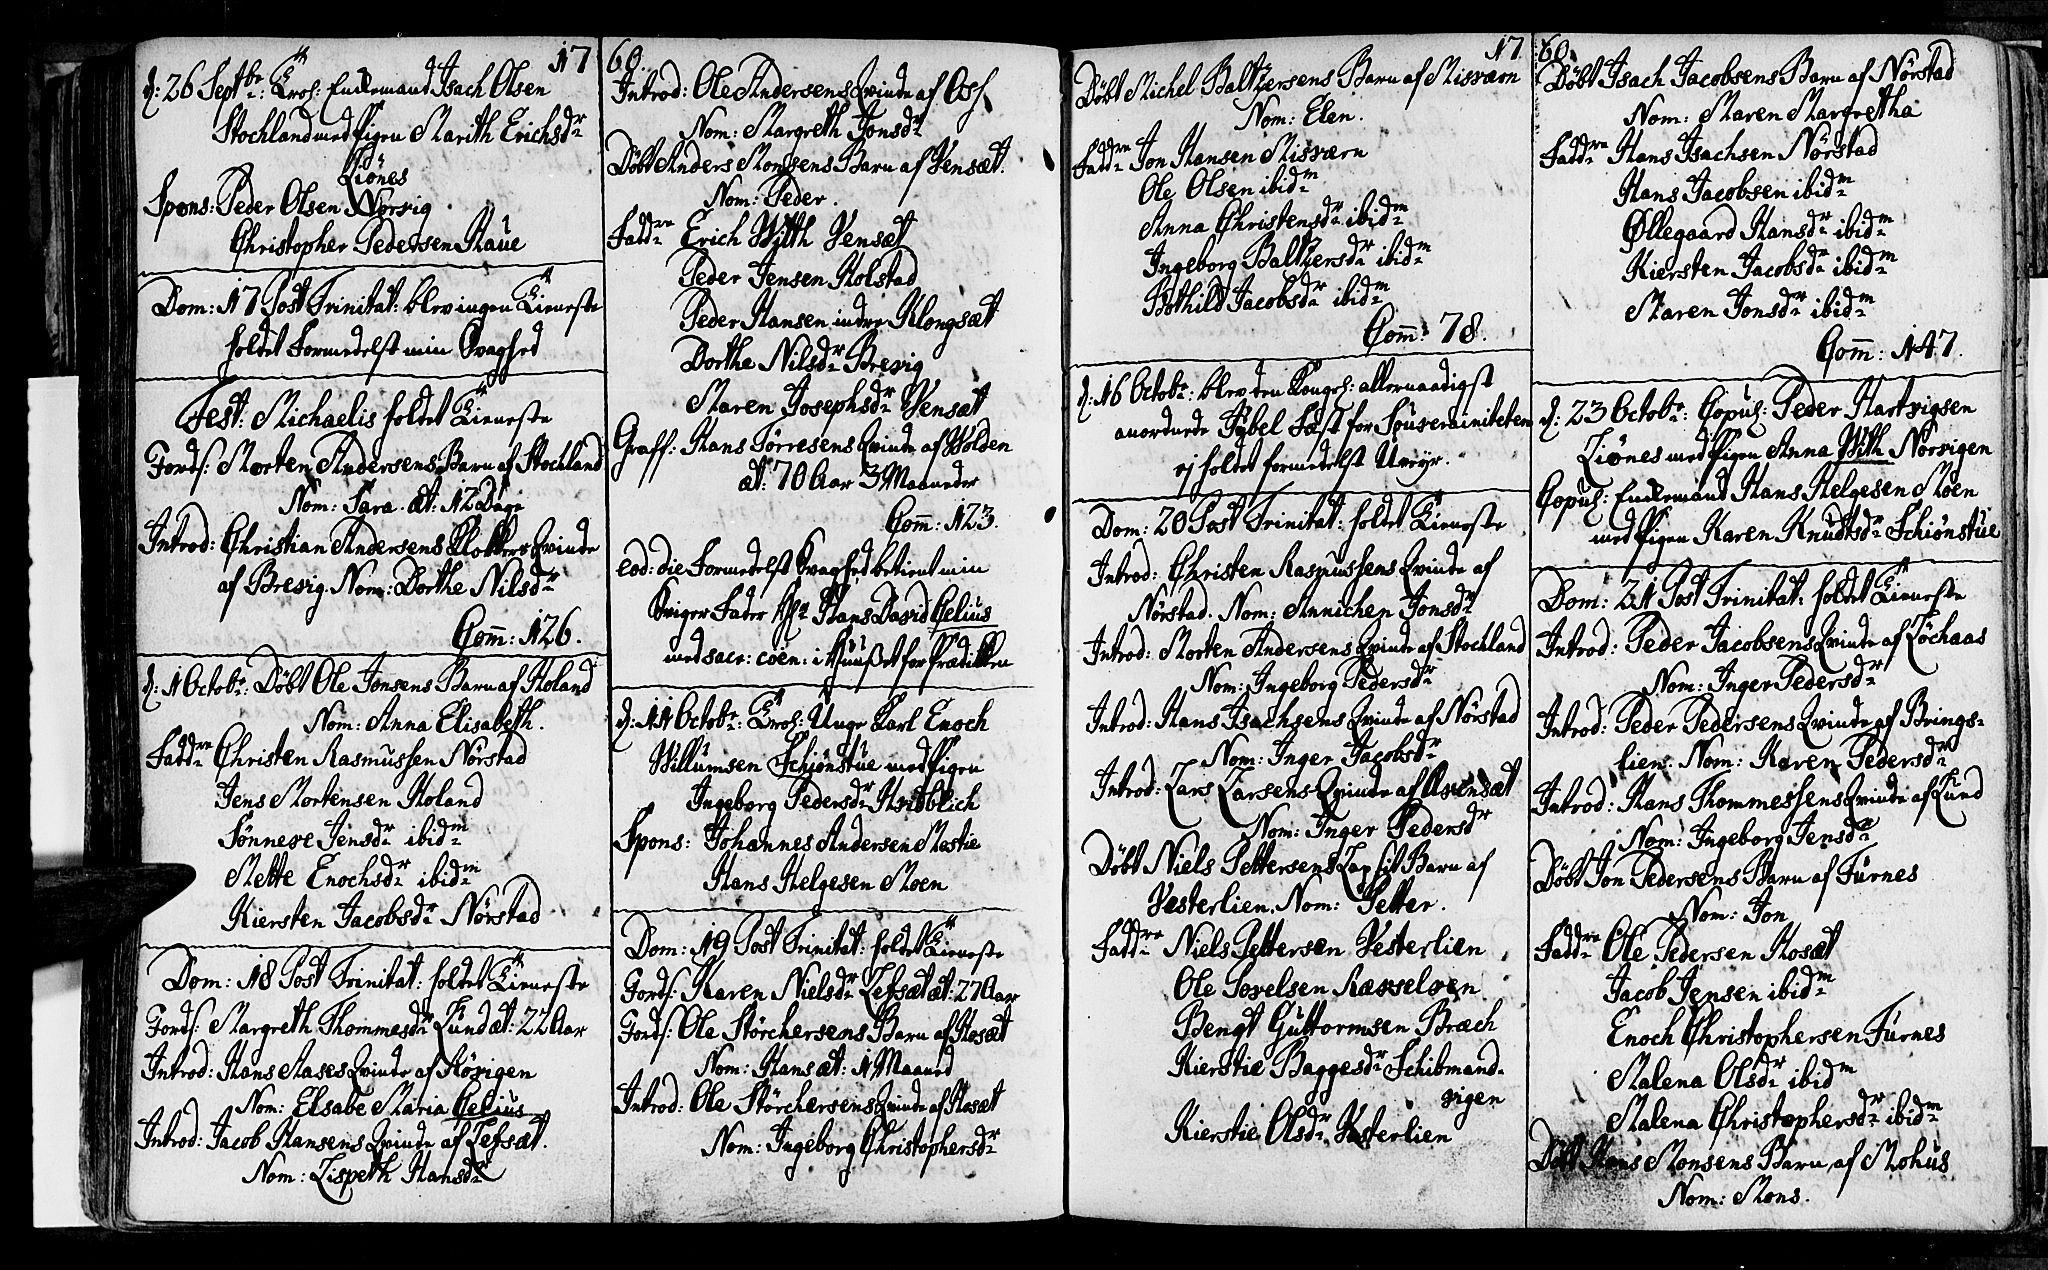 17
d: 26 Septbr: Trol: Enckemand Isach Olsen
Stochland med Pigen Marith Erichsdr
Liønes
Spons: Peder Olsen Norvig
Christopher Pedersen Haue
Dom: 17 Post Trinitat: blev ingen Tieneste
holdet Formedelst min Svaghed
Fest: Michaelis holdet Tieneste
Jords: Morten Andersens Barn af Stochland
Nom: Sara. æt: 12 Dage
Introd: Christian Andersens Klokkers Qvinde
af Brevig. Nom: Dorthe Nilsdr
Com: 126.
d: 1 Octobr: Døbt Ole Jonsens Barn af Holand
Nom: Anna Elisabeth.
Faddre Christen Rasmussen Nørstad
Jens Mortensen Holand
Sønneve Jensdr ibidm
Mette Enochsdr ibidm
Kiersten Jacobsdr Nørstad
Dom: 18 Post Trinitat: holdet Tieneste
Jords: Margreth Thommesdr Lund æt: 22 Aar
Introd: Hans Aases Qvinde af Høvigen
Nom: Elsabe Maria Celius
Introd: Jacob Hansens Qvinde af Lefsæt.
Nom: Lispeth Hansdr
60.
Introd: Ole Andersens Qvinde af Os
Nom: Margreth Jonsdr
Døbt Anders Monsens Barn af Vensæt.
Nom: Peder.
Faddre Erich With Vensæt
Peder Jensen Holstad
Peder Hansen indre Klongsæt
Dorthe Nilsdr Brevig
Maren Josephsdr Vensæt
Graff: Hans Tørresens Qvinde af Volden
æt: 70 Aar 3 Maaneder
Com: 123.
eod: die Formedelst Svaghed betient min
Sviger Fader Hr Hans David Celius
med sacr: coen: i Huuset for Prædikken
d: 11 Octobr: Trol: Unge Karl Enoch
Willumsen Schiønstue med Pigen
Ingeborg Pedersdr Hvidblich
Spons: Johannes Andersen Mestie
Hans Helgesen Moen
Dom: 19 Post Trinitat: holdet Tieneste
Jords: Karen Nielsdr Lefsæt æt: 27 Aar
Jords: Ole Størchersens Barn af Hosæt
Nom: Hans æt: 1 Maaned
Introd: Ole Størchersens Qvinde af Hosæt
Nom: Ingeborg Christophersdr
17
Døbt Michel Baltzersens Barn af Misværn
Nom: Elen.
Faddre Jon Hansen Misværn
Ole Olsen ibidm
Anna Christensdr ibidm
Ingeborg Baltzersdr ibidm
Bothild Jacobsdr ibidm
Com: 78.
d: 16 Octobr: blev den Kongel: allernaadigst
anordnede Jubel Fest for Souverainiteten
ej holdet formedelst Uveyr.
Dom: 20 Post Trinitat: holdet Tieneste
Introd: Christen Rasmussens Qvinde af
Nørstad. Nom: Annichen Jonsdr
Introd: Morten Andersens Qvinde af Stochland
Nom: Ingeborg Pedersdr
Introd: Hans Isachsens Qvinde af Nørstad
Nom: Inger Jacobsdr
Introd: Lars Larsens Qvinde af Avensæt
Nom: Inger Pedersdr
Døbt Niels Pettersens Lap sit Barn af
Vesterlien. Nom: Petter.
Faddre Niels Pettersen Vesterlien
Ole Povelsen Rævselven
Bengt Guttormsen Bræch
Kierstie Baggesdr Schibmand-
vigen
Kierstie Olsdr Vesterlien
60.
Døbt Isach Jacobsens Barn af Nørstad
Nom: Maren Margretha
Faddre Hans Isachsen Nørstad
Hans Jacobsen ibidm
Øllegaard Hansdr ibidm
Kiersten Jacobsdr ibidm
Maren Jonsdr ibidm
Com: 147.
d: 23 Octobr: Copul: Peder Hartvigsen
Liønes med Pigen Anna With Norvigen
Copul: Enckemand Hans Helgesen Moen
med Pigen Karen Knudtsdr Schiønstue
Dom: 21 Post Trinitat: holdet Tieneste
Introd: Peder Jacobsens Qvinde af Løchaas
Nom: Inger Pedersdr
Introd: Peder Pedersens Qvinde af Brings-
lien. Nom: Karen Pedersdr
Introd: Hans Thommessens Qvinde af Lund
Nom: Ingeborg Jensdr
Døbt Jon Pedersens Barn af Furnes
Nom: Jon
Faddre Ole Pedersen Hosæt
Jacob Jensen ibidm
Enoch Christophersen Furnes
Malena Olsdr ibidm
Malena Christophersdr ibidm
Døbt Hans Monsens Barn af Mohus
Nom: Mons.